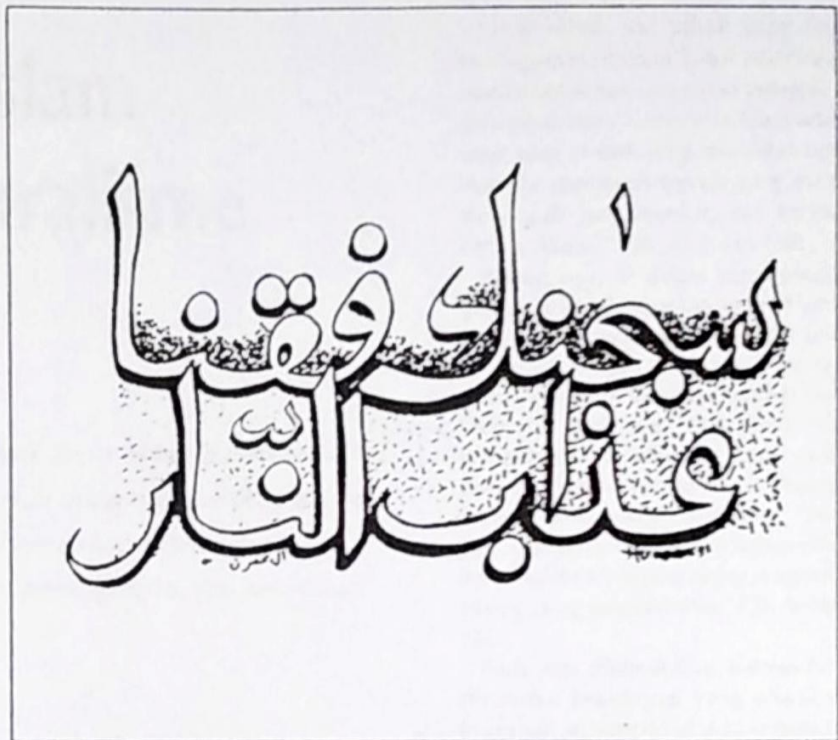 سبحٰنك فقنا
عذاب النّار
ال عمرن